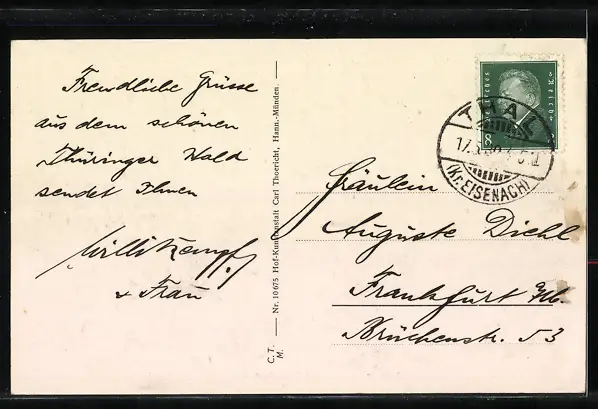 Freundliche Grüsse
aus dem schönen
Thüringer Wald
sendet Ihnen
Willi Kempf
u Frau
Nr. 10675 Hof-Kunstanstalt Carl Thoericht, Hann.-Münden.
C. T.
M.
Deutsches Reich
8
THAL
(Kr. EISENACH)
Fräulein
Auguste Diehl
Frankfurt a/M.
Brückenstr. 53